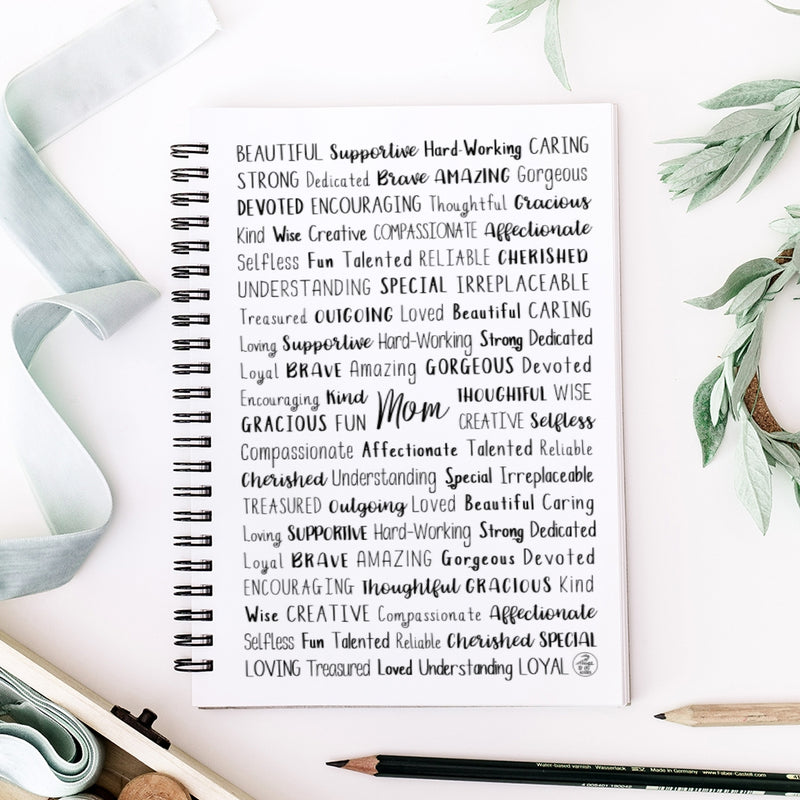 BEAUTIFUL Supportive Hard-Working CARING
STRONG Dedicated Brave AMAZING Gorgeous
DEVOTED ENCOURAGING Thoughtful Gracious
Kind Wise Creative COMPASSIONATE Affectionate
Selfless Fun Talented RELIABLE CHERISHED
UNDERSTANDING SPECIAL IRREPLACEABLE
Treasured OUTGOING Loved Beautiful CARING
Loving Supportive Hard-Working Strong Dedicated
Loyal BRAVE Amazing GORGEOUS Devoted
Encouraging Kind THOUGHTFUL WISE
Mom
GRACIOUS FUN CREATIVE Selfless
Compassionate Affectionate Talented Reliable
Cherished Understanding Special Irreplaceable
TREASURED Outgoing Loved Beautiful Caring
Loving SUPPORTIVE Hard-Working Strong Dedicated
Loyal BRAVE AMAZING Gorgeous Devoted
ENCOURAGING Thoughtful GRACIOUS Kind
Wise CREATIVE Compassionate Affectionate
Selfless Fun Talented Reliable Cherished SPECIAL
LOVING Treasured Loved Understanding LOYAL
Water-based varnish Wasserlack Made in Germany www.Faber-Castell.com